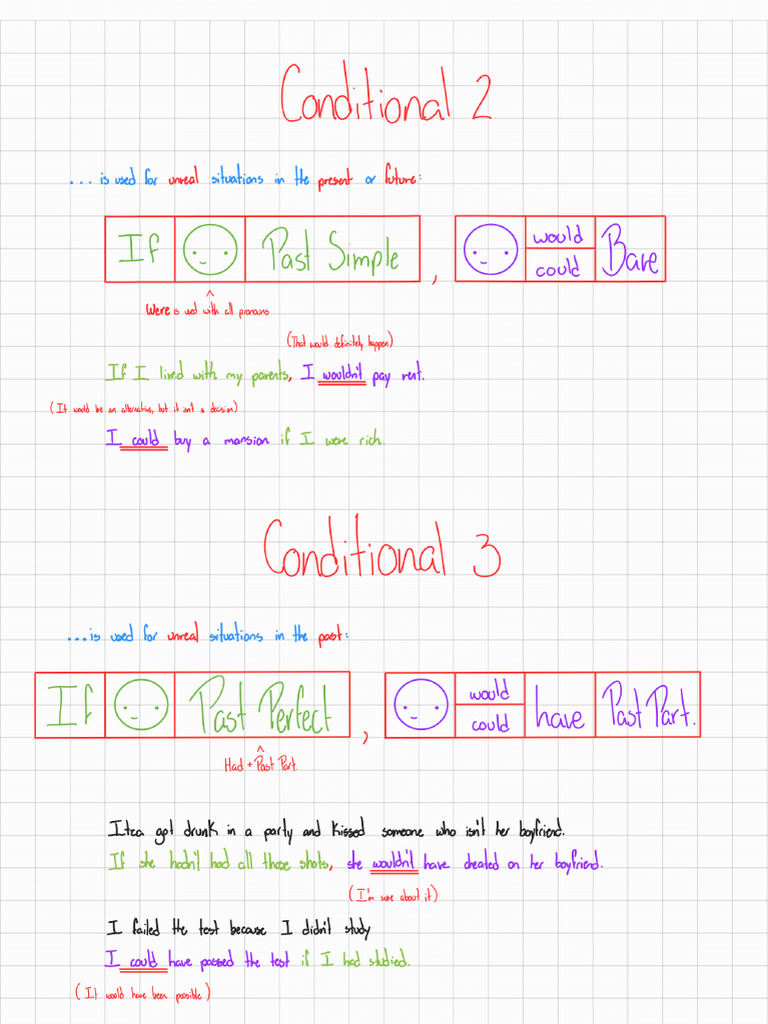 Conditional 2
... is used for unreal situations in the present or future:
If Past Simple , would could Bare
were is used with all pronouns
(That would definitely happen)
If I lived with my parents, I wouldn't pay rent.
(It would be an alternative, but it isn't a decision)
I could buy a mansion if I were rich.
Conditional 3
...is used for unreal situations in the past:
If Past Perfect , would could have Past Part.
Had + Past Part.
Itza got drunk in a party and kissed someone who isn't her boyfriend.
If she hadn't had all those shots, she wouldn't have cheated on her boyfriend.
(I'm sure about it)
I failed the test because I didn't study
I could have passed the test if I had studied.
(It would have been possible)